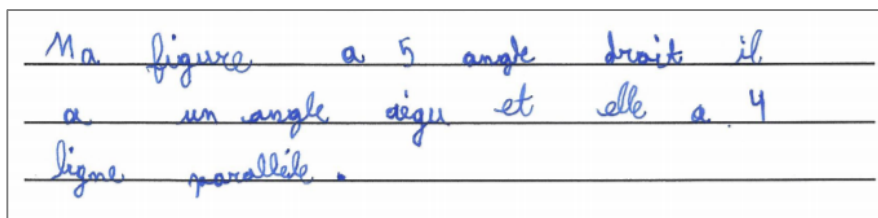 Ma figure a 5 angle droit il
a un angle aégu et elle a 4
ligne parallèle.